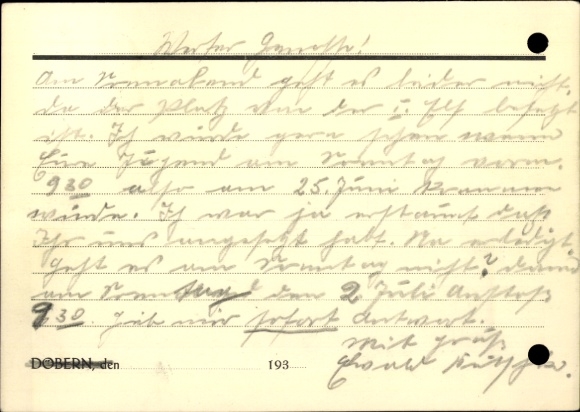 Werter Genosse!
Am Sonnabend geht es leider nicht,
da der Platz von der I. Elf besetzt
ist. Ich würde gern sehen wenn
Eure Jugend am Sonntag vorm.
9 30 also am 25. Juni kommen
würde. Ich war ja erstaunt daß
Ihr uns angesetzt habt. Na erledigt
Geht es am Sonntag nicht? dann
am Sonntag den 2 Juli Anstoß
9 30. Gib mir sofort Antwort.
Mit Gruß
Ewald
DÖBERN, den 193